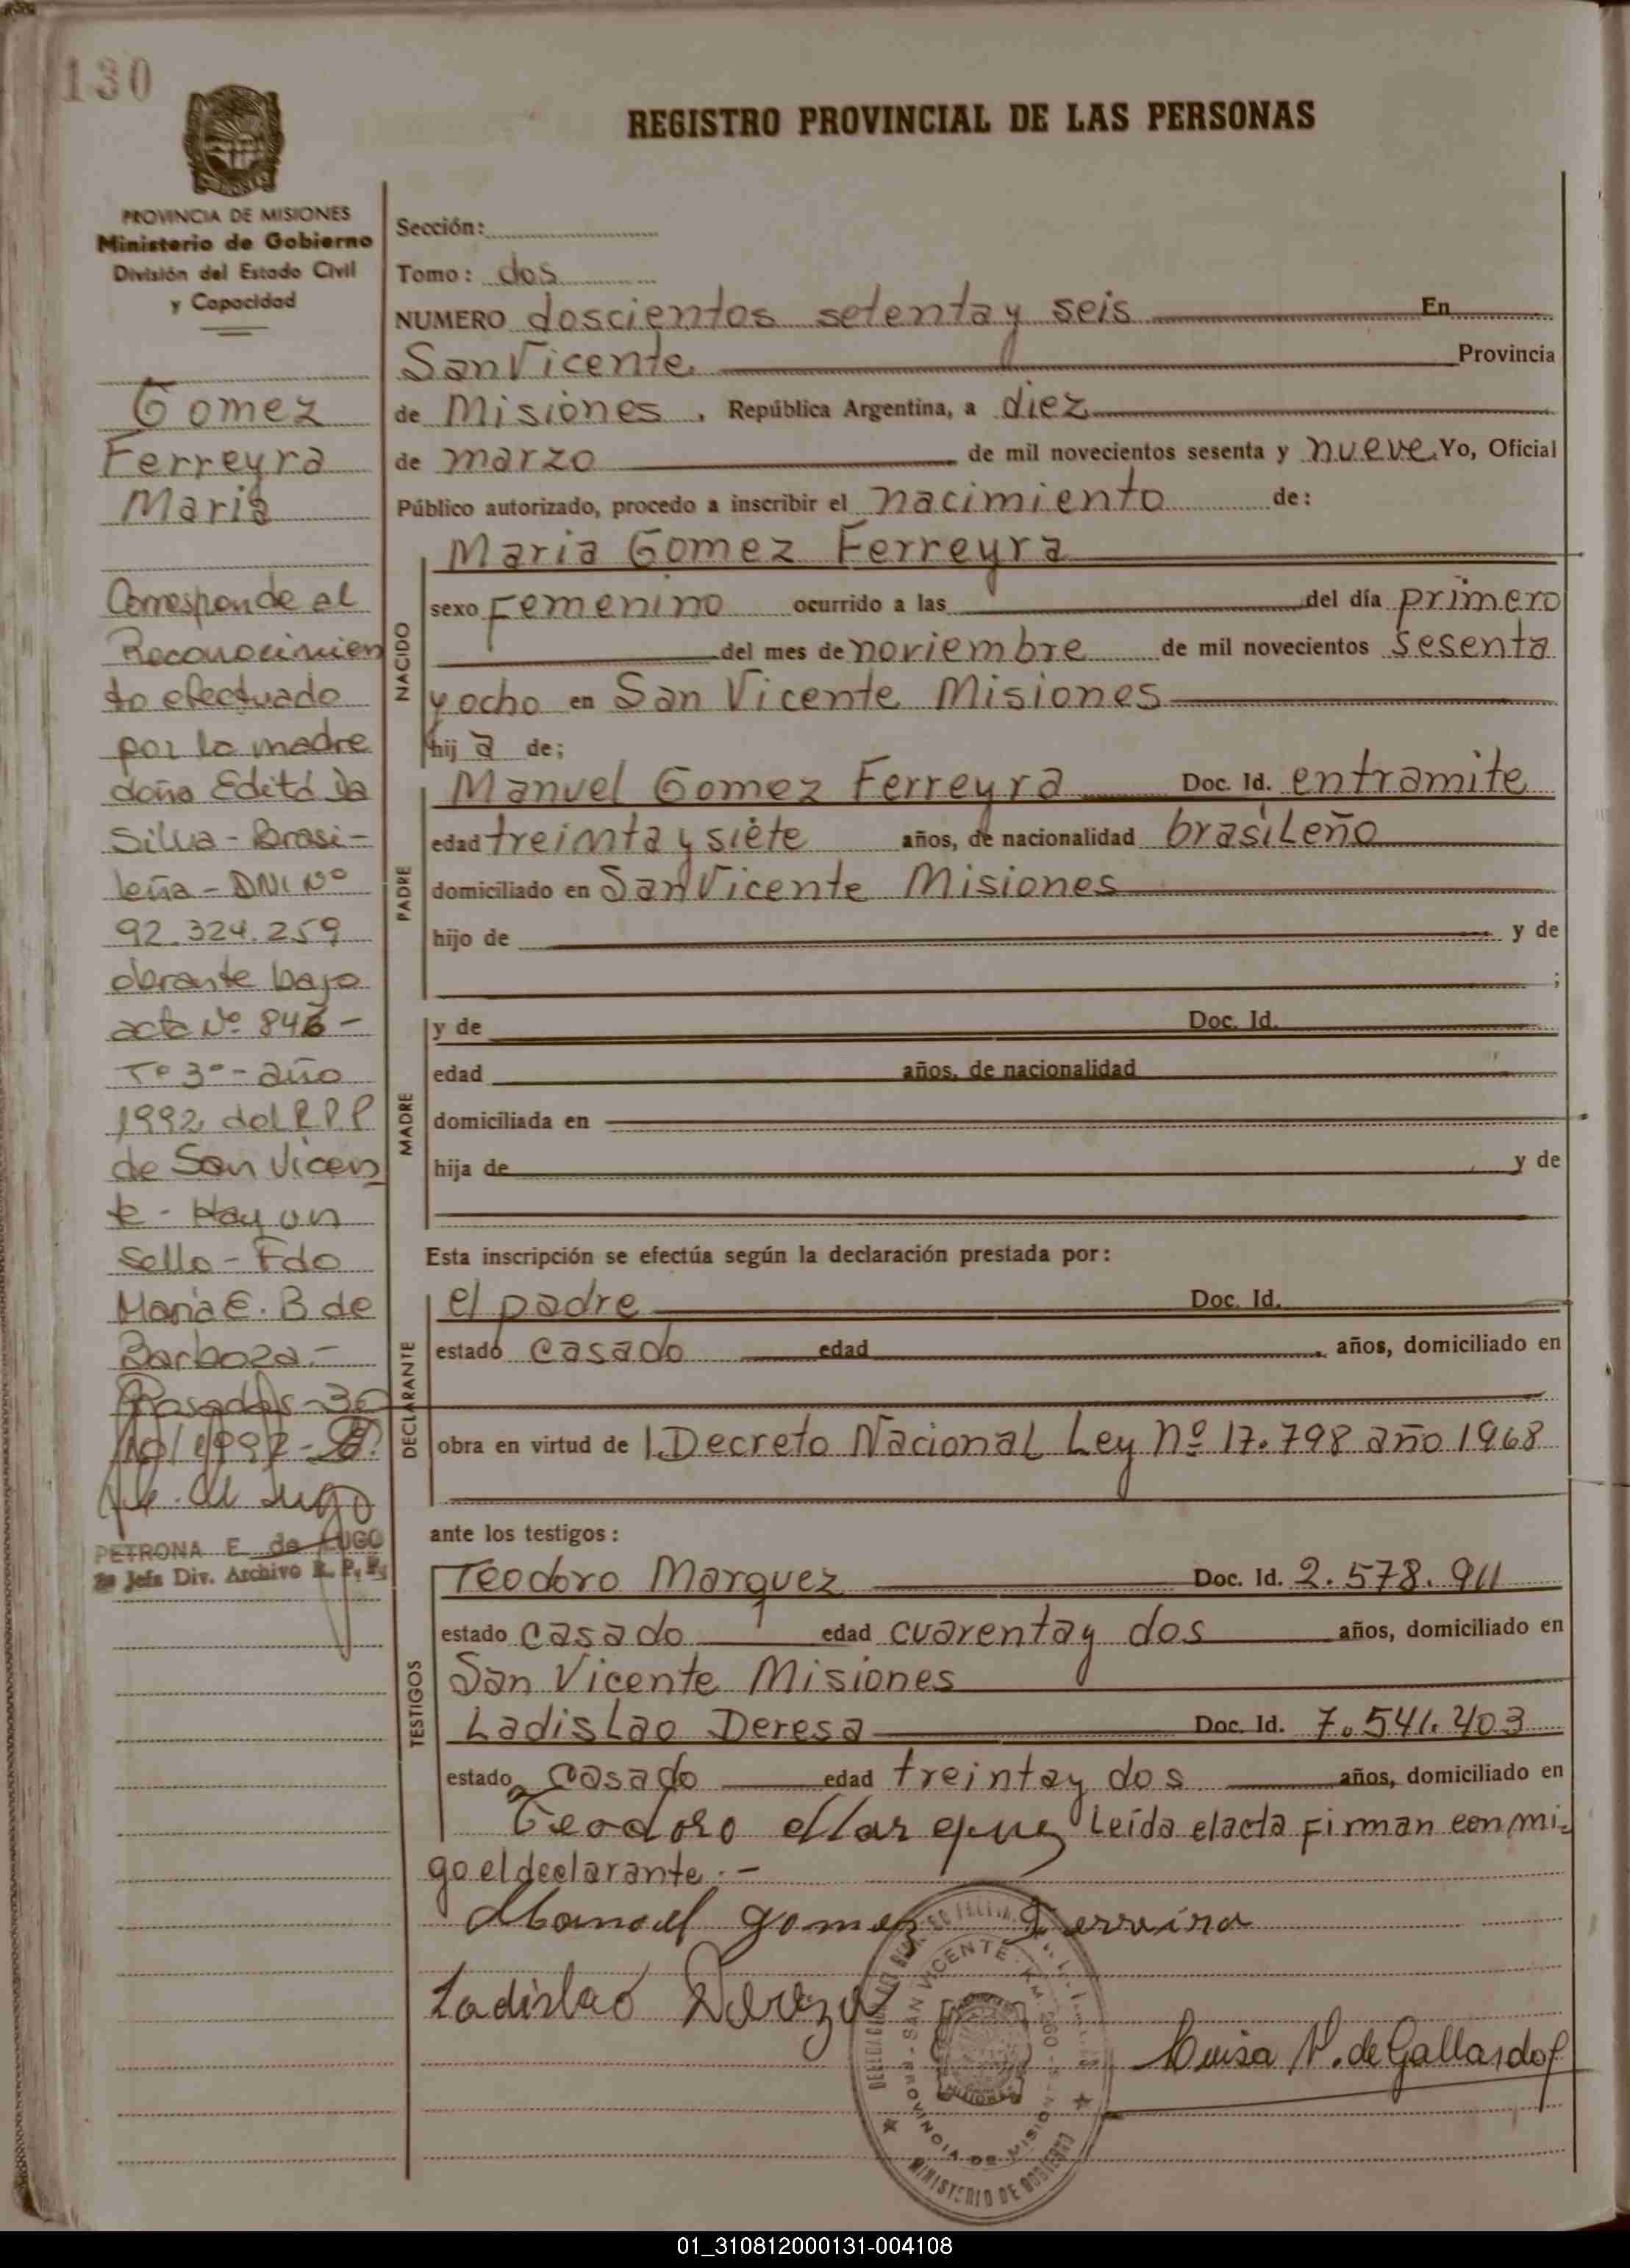 130
REGISTRO PROVINCIAL DE LAS PERSONAS
PROVINCIA DE MISIONES
Ministerio de Gobierno
División del Estado Civil
y Capacidad
Gomez
Ferreyra
Maria
Corresponde al
Reconocimien
to efectuado
por la madre
doña Edita Da
Silva - Brasi-
leña - DNI Nº
92.324.259
obrante bajo
acta Nº 846 -
Tº 3º - año
1992 del R.P.P
de San Vicen
te - Hay un
sello - Fdo
Maria E. B de
Barboza.-
Posadas - 30
10/1992 -
de Lugo
PETRONA E. de LUGO
Jefa Div. Archivo R. P. P.
Sección:
Tomo: dos
NUMERO doscientos setenta y seis En
San Vicente Provincia
de Misiones, República Argentina, a diez
de marzo de mil novecientos sesenta y nueve Yo, Oficial
Público autorizado, procedo a inscribir el nacimiento de:
NACIDO
Maria Gomez Ferreyra
sexo Femenino ocurrido a las del día primero
del mes de noviembre de mil novecientos sesenta
y ocho en San Vicente Misiones
hij a de;
PADRE
Manuel Gomez Ferreyra Doc. Id. entramite
edad treinta y siete años, de nacionalidad brasileño
domiciliado en San Vicente Misiones
hijo de y de
;
MADRE
y de Doc. Id.
edad años, de nacionalidad
domiciliada en
hija de y de
Esta inscripción se efectúa según la declaración prestada por:
DECLARANTE
el padre Doc. Id.
estado casado edad años, domiciliado en
obra en virtud de l Decreto Nacional Ley Nº 17.798 año 1968
ante los testigos:
TESTIGOS
Teodoro Marquez Doc. Id. 2.578.911
estado casado edad cuarenta y dos años, domiciliado en
San Vicente Misiones
Ladislao Deresa Doc. Id. 7.541.403
estado casado edad treinta y dos años, domiciliado en
Teodoro Marquez Leída el acta firman conmi-
go el declarante.-
Manoel Gomez Ferreira
Ladislao
Luisa V. de Gallardo
SAN VICENTE
PROVINCIA DE MISIONES
MINISTERIO DE GOBIERNO
MISIONES
01_310812000131-004108